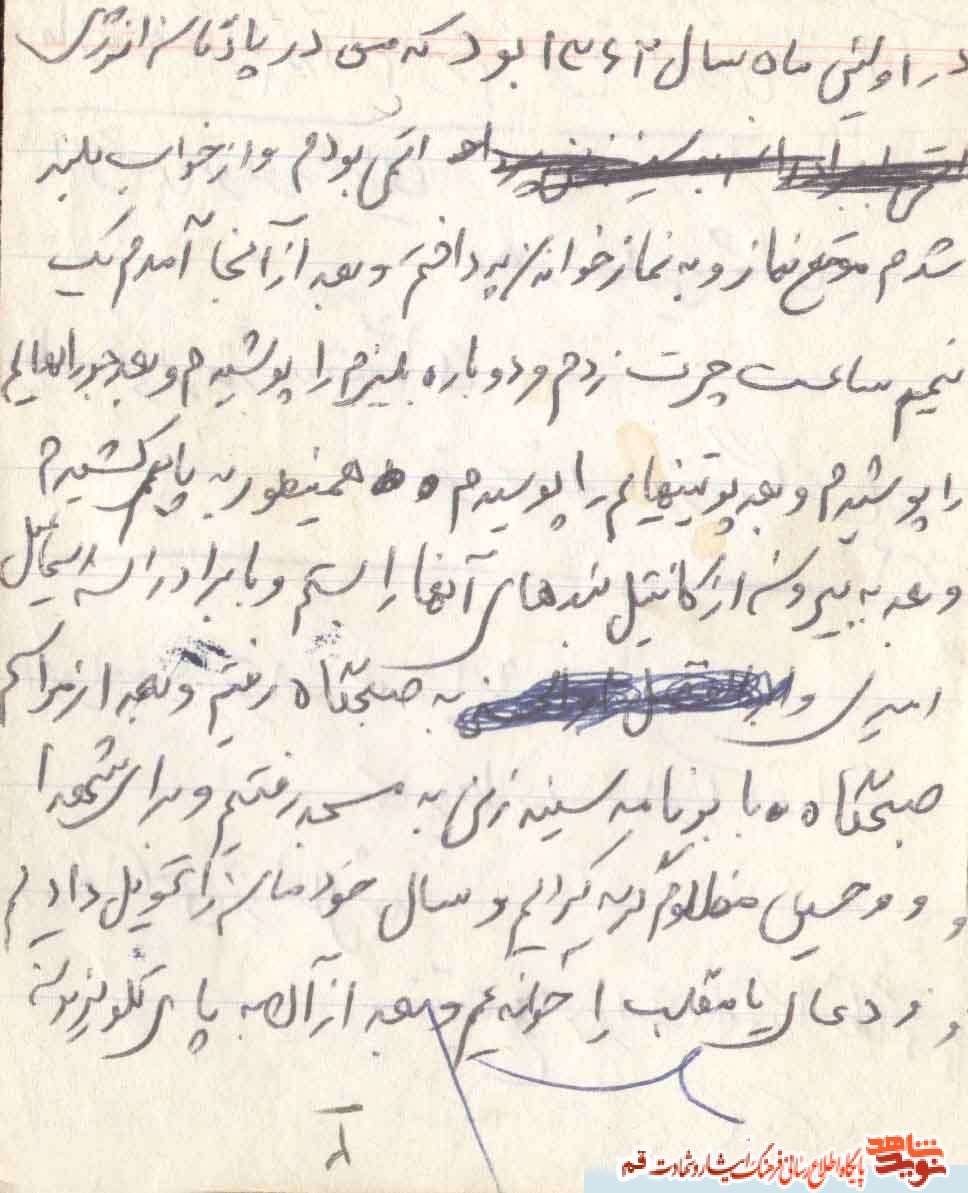 در اولین ماه سال ۱۳۶۳ بود که من در پادگان انرژی
اتمی بودم و از خواب بلند
شدم موقع نماز و به نماز خواندن پرداختم و بعد از آنجا آمدم یک
نیم ساعت چرت زدم و دوباره بلیزم را پوشیدم و بعد جورابهایم
را پوشیدم و بعد پوتینهایم را پوسیدم همینطور به پایم کشیدم
و بعد به بیرون از کانتیل بندهای آنها را بستم و با برادران اسماعیل
امیری و به صبحگاه رفتیم و بعد از مراسم
صبحگاه با برنامه سینه زنی به مسجد رفتیم و برای شهدا
و حسین مظلوم گریه کردیم و سال خودمان را تحویل دادیم
و دعای یا مقلب را خواندیم و بعد از آن به پای تلویزیون
۱
نوید شاهد
پایگاه اطلاع رسانی فرهنگ ایثار و شهادت قم